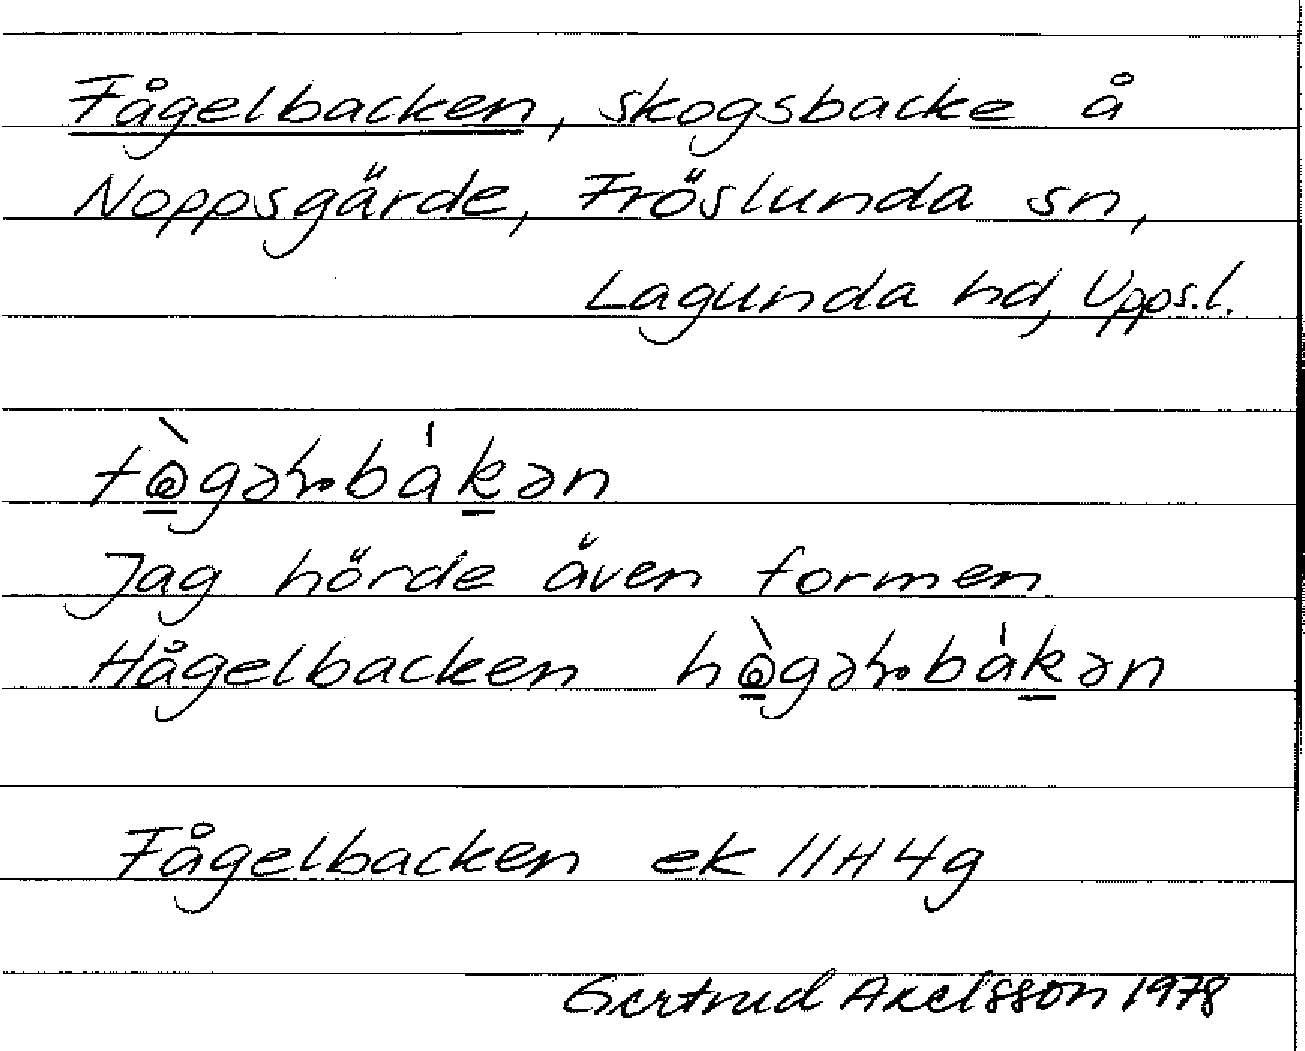 Fågelbacken, skogsbacke å
Noppsgärde, Fröslunda sn,
Lagunda hd, Upps.l.
Jag hörde även formen
Hågelbacken
Fågelbacken ek 11H4g
Gertrud Axelsson 1978